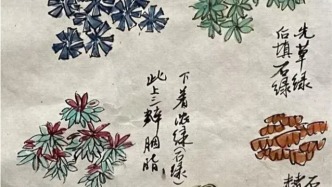 先草绿
后填石绿
下着浓绿(石绿)
此上三种胭脂
石